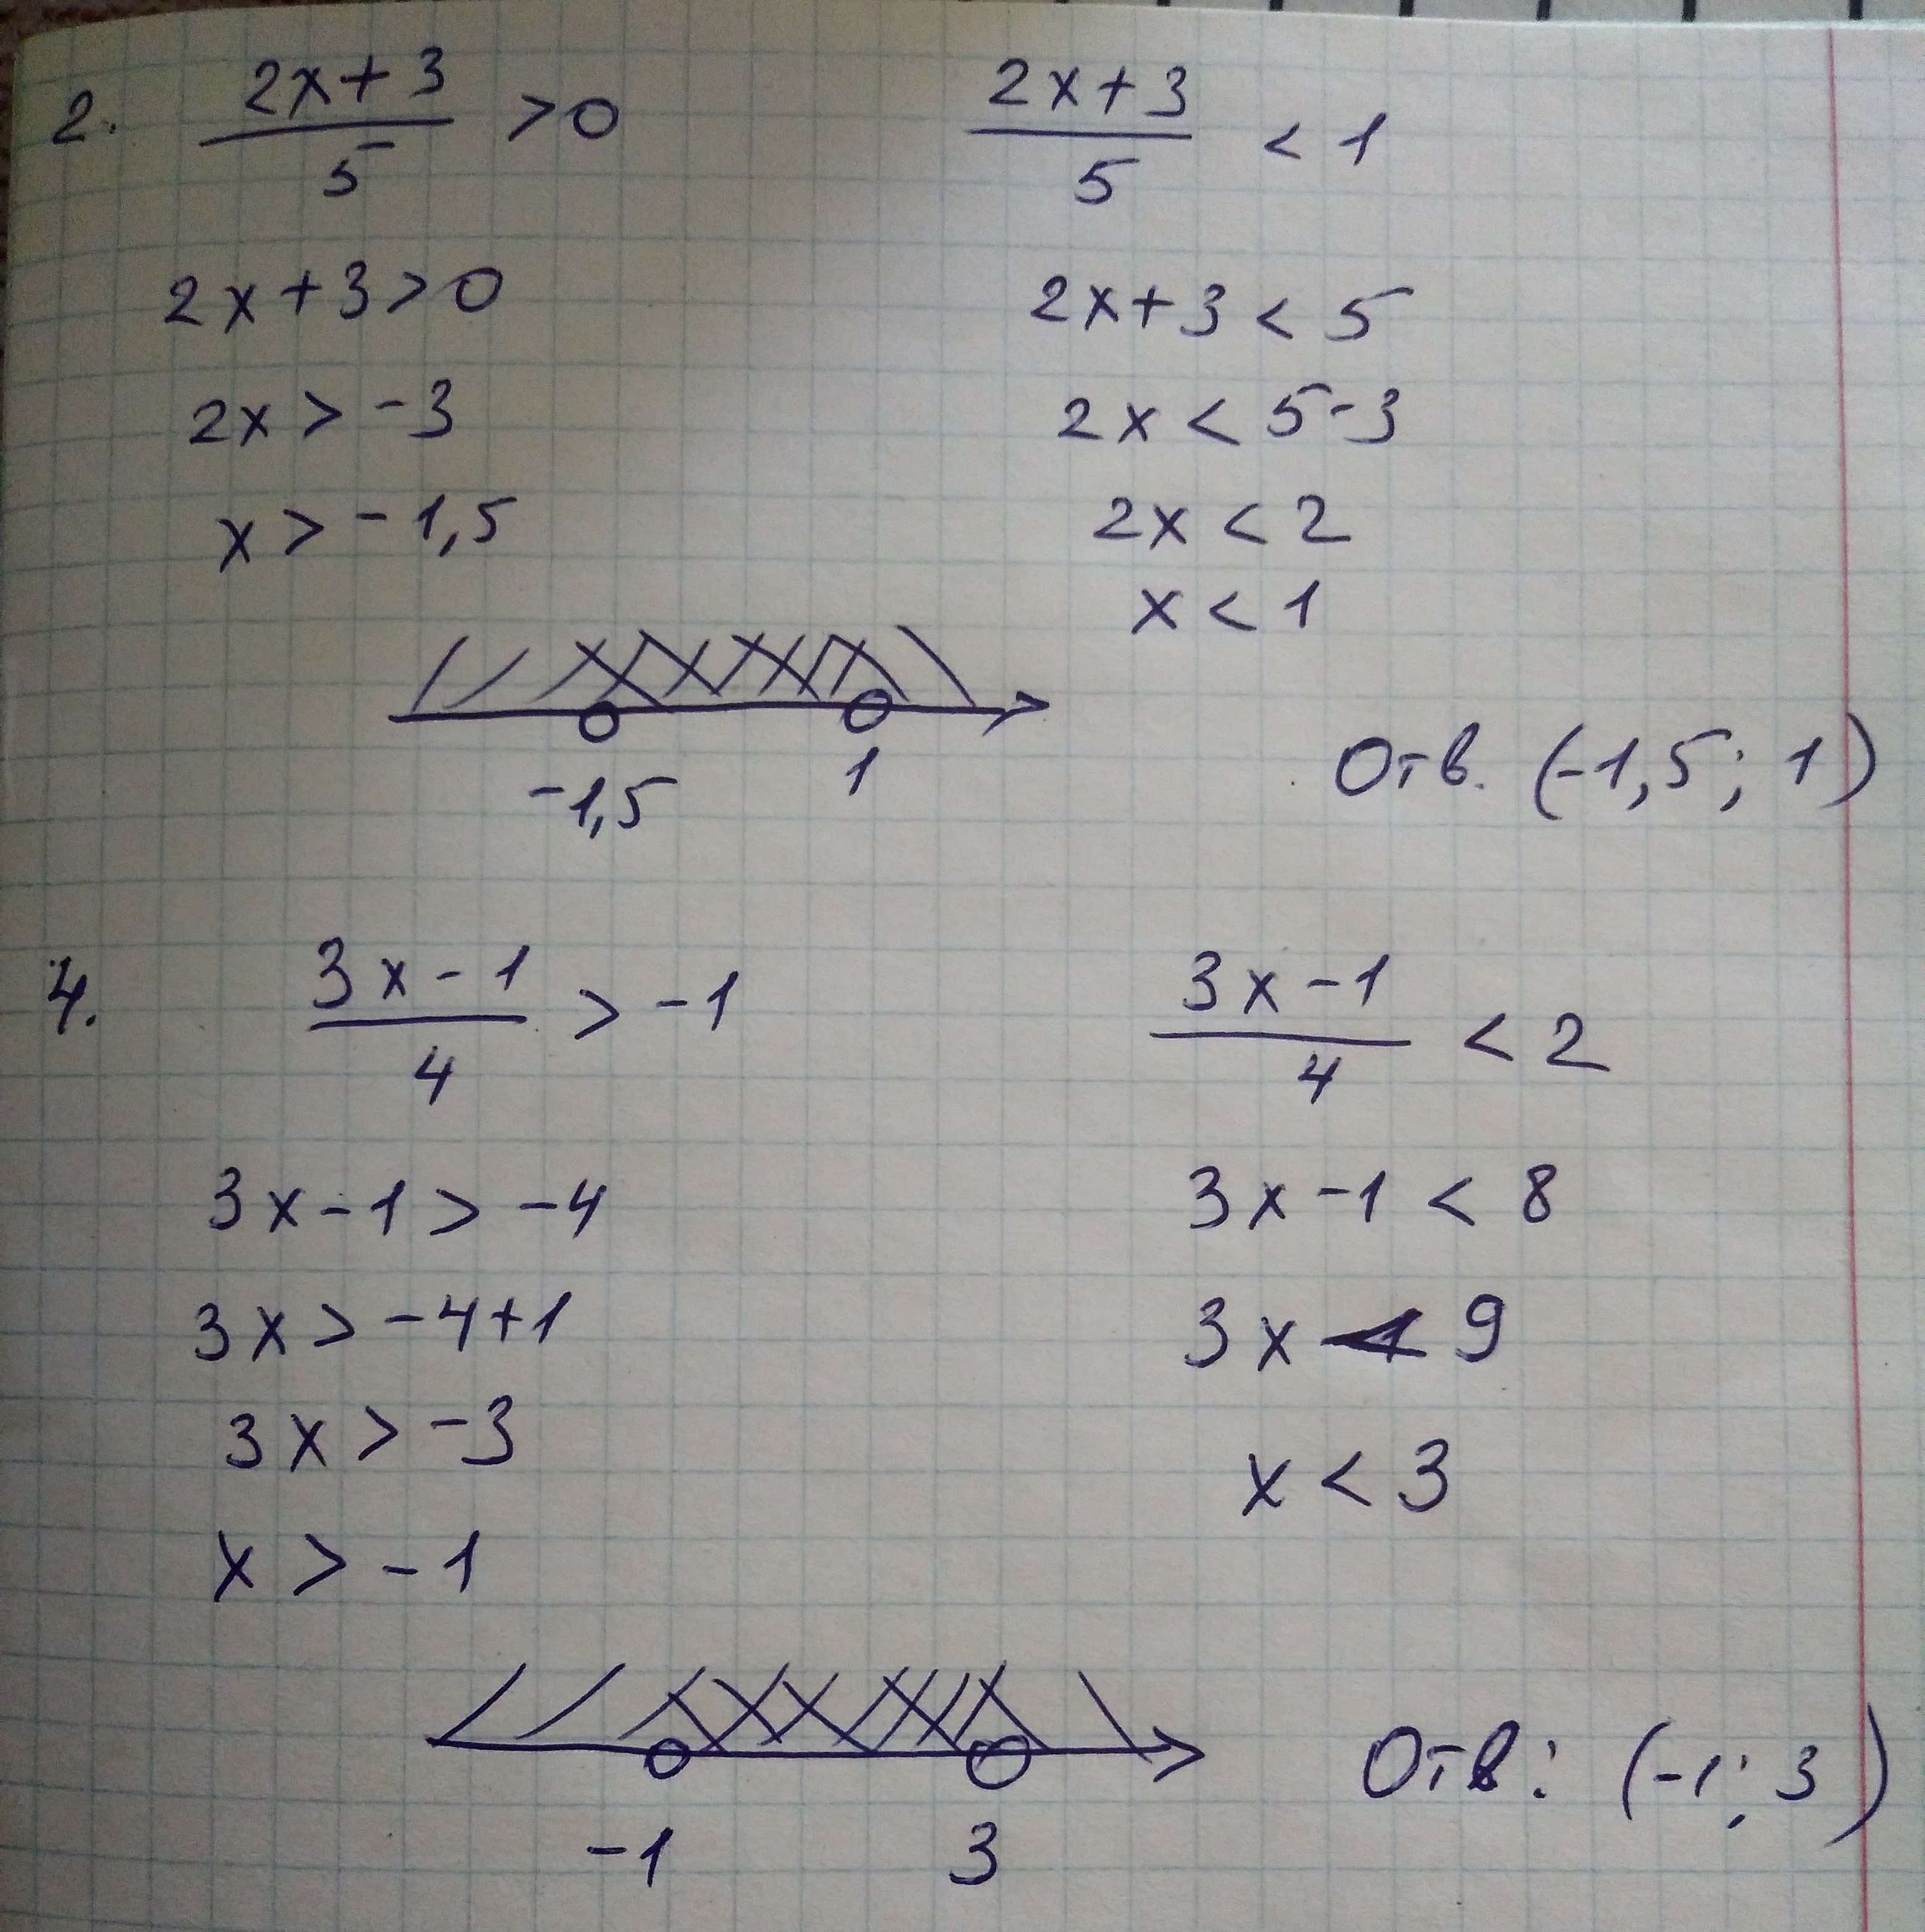 2. (2x+3)/5 > 0
2x+3 > 0
2x > -3
x > -1,5
(2x+3)/5 < 1
2x+3 < 5
2x < 5-3
2x < 2
x < 1
-1,5 1
Отв. (-1,5; 1)
4. (3x-1)/4 > -1
3x-1 > -4
3x > -4+1
3x > -3
x > -1
(3x-1)/4 < 2
3x-1 < 8
3x < 9
x < 3
-1 3
Отв: (-1; 3)